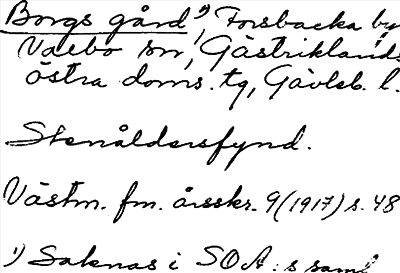 Borgs gård ¹) Forsbacka by
Valbo sn, ¹) Gästriklands
östra doms. tg, Gävleb. l.
Stenåldersfynd.
Västm. fm. årsskr. 9 (1917) s. 48
¹) Saknas i SOA:s saml